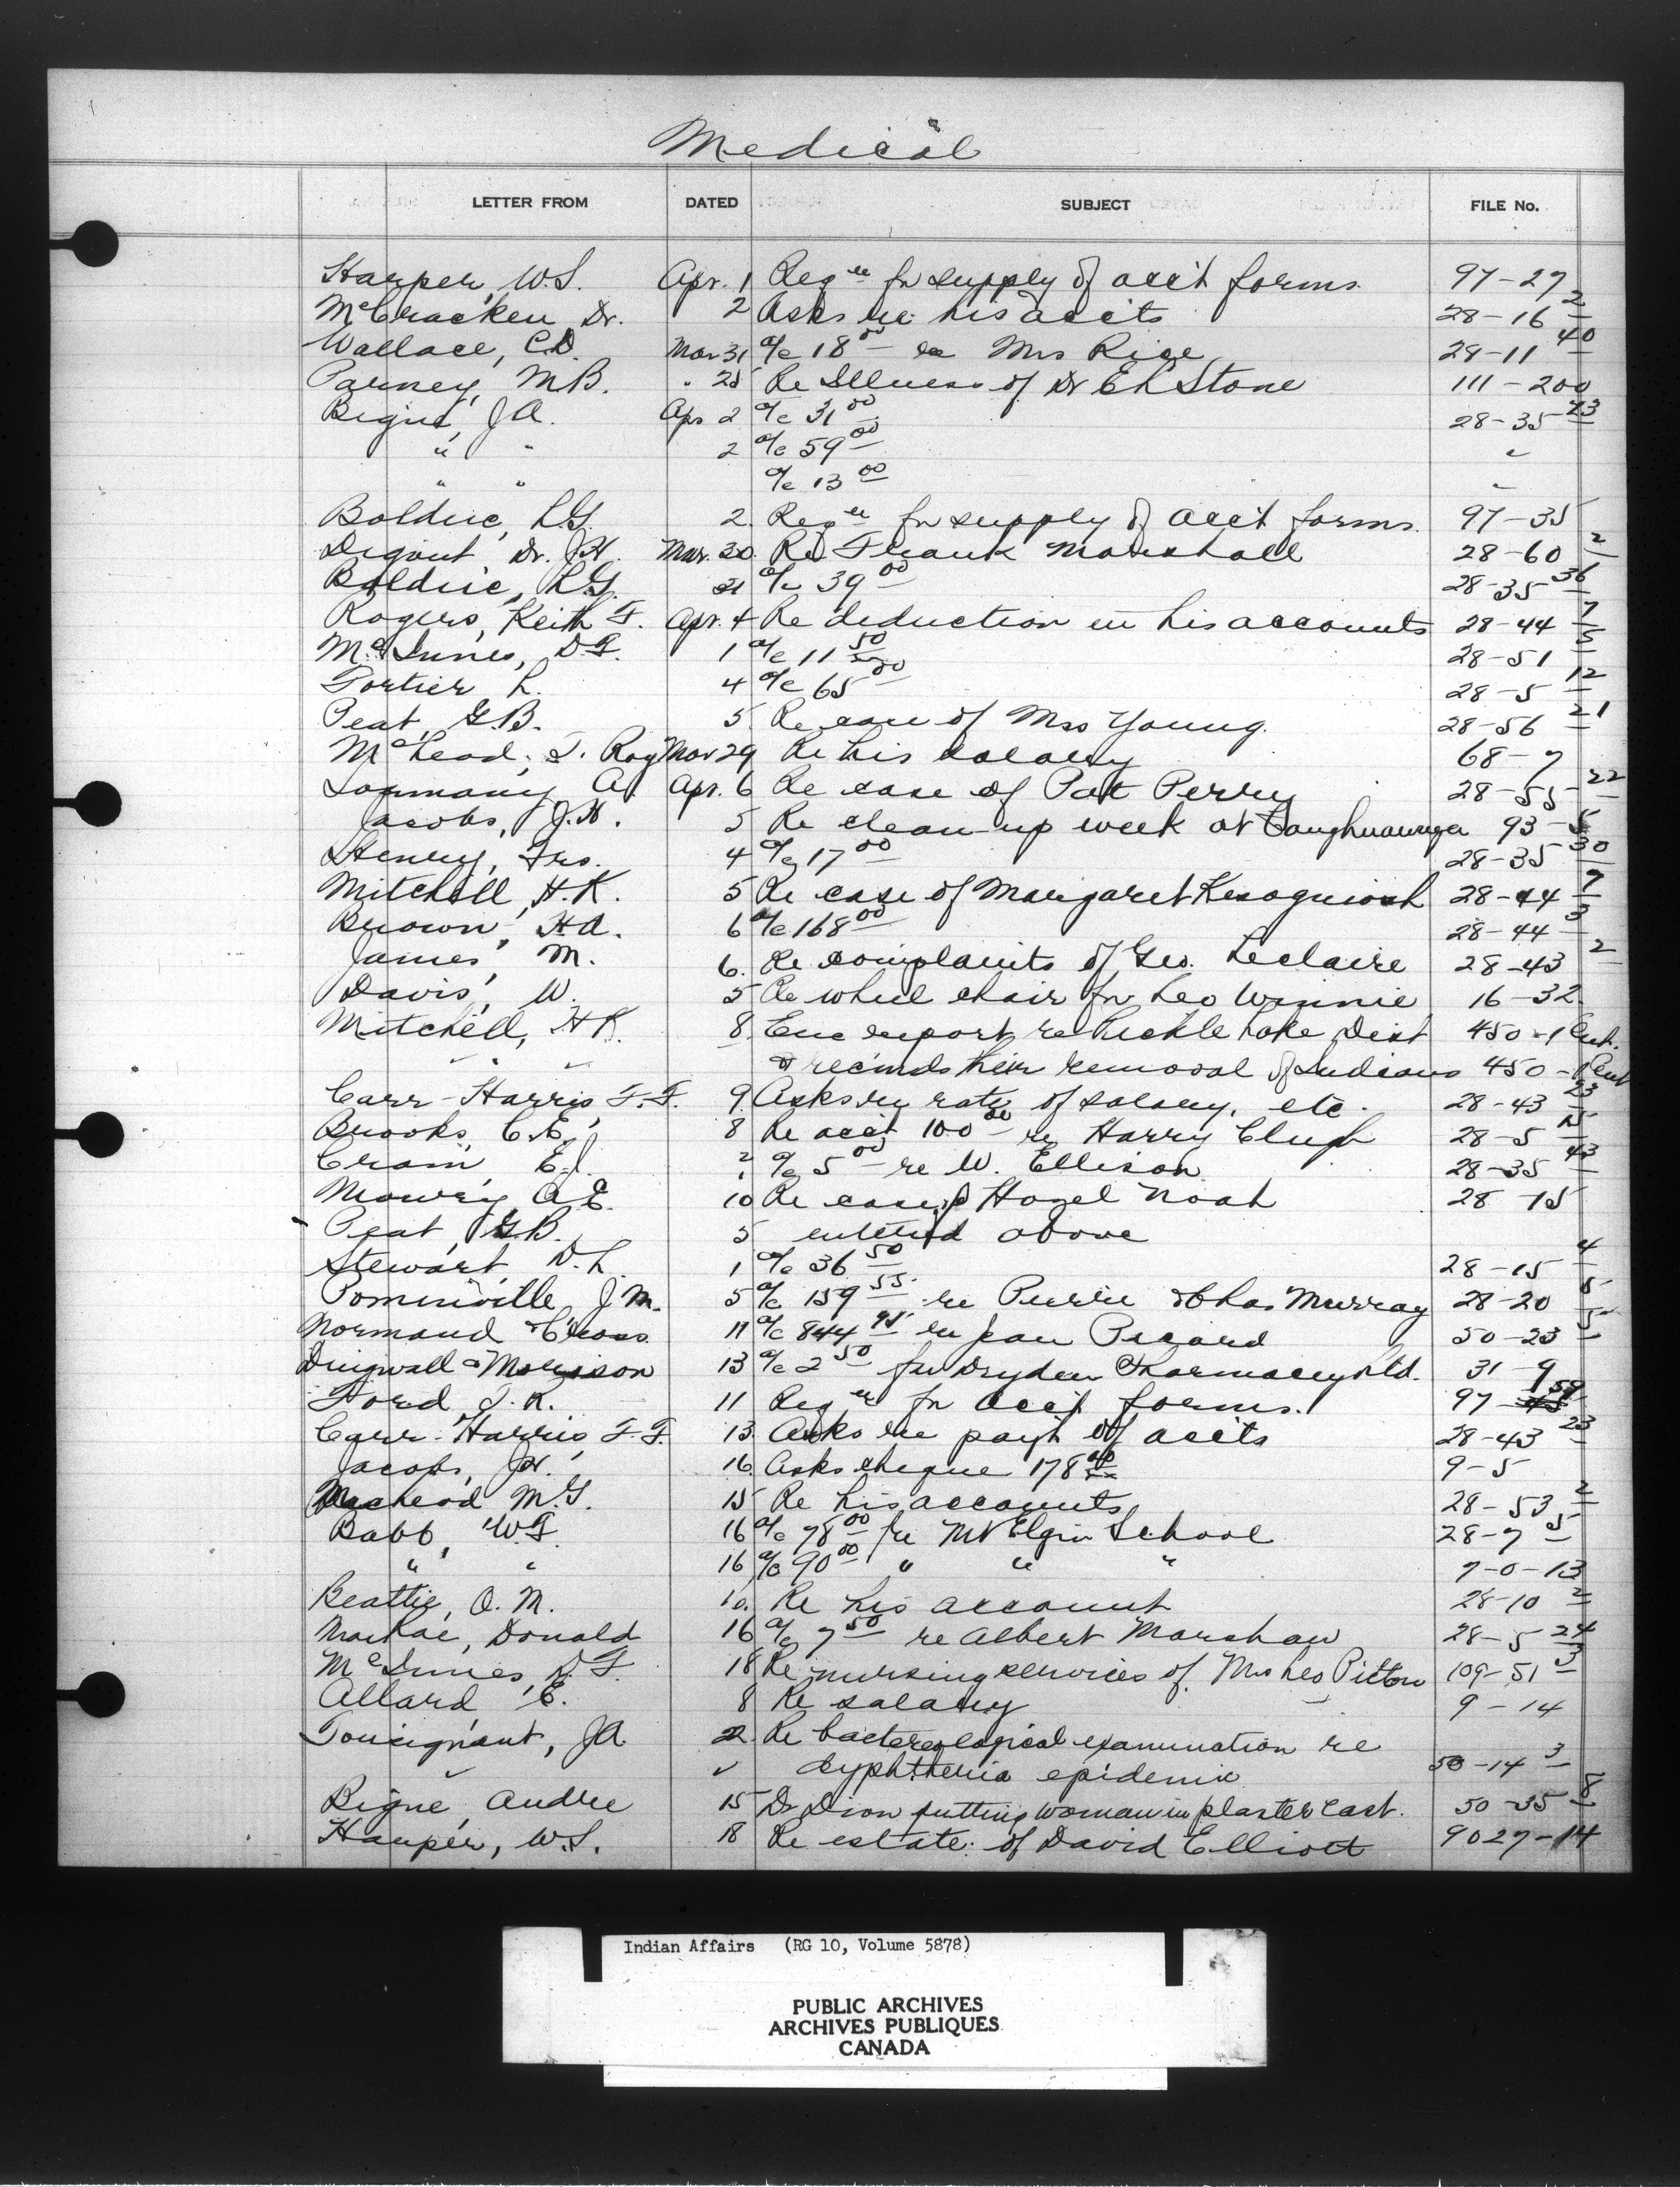 Medical
LETTER FROM DATED SUBJECT FILE No.
Harper, W.S. Apr. 1 Reqn for supply of acc't forms. 97-27
McCracken, Dr. 2 Asks re his accts 28-16 2
Wallace, C.D. Mar 31 a/c 18.00 re Mrs Rice 28-11 40
Parney, M.B. " 28 Re Illness of Dr E L Stone 111-200
Bigué, J.A. Apr 2 a/c 31.00 28-35 23
" " 2 a/c 59.00 "
" " a/c 13.00 "
Bolduc, L.G. 2. Reqn for supply of acc't forms. 97-35
Dr. J.H. Mar. 30. Re Frank Marshall 28-60 2
Bolduc, L.G. 31 a/c 39.00 28-35 36
Rogers, Keith F. Apr. 4 Re deduction in his accounts 28-44 7
McInnes, D.F. 1 a/c 11.50 28-51 5
Fortier, L. 4 a/c 65.00 28-5 12
Peat, G.B. 5 Re case of Mrs Young 28-56 21
McLeod, J. Roy Mar 29 Re his salary 68-7
A. Apr. 6 Re case of Pat Perry 28-55 22
Jacobs, J.H. 5 Re clean-up week at Caughnawaga 93-5
Henry, Frs. 4 a/c 17.00 28-35 30
Mitchell, H.K. 5 Re case of Margaret 28-44 7
Brown, H.A. 6 a/c 168.00 28-44 3
James, M. 6. Re complaints of Geo. Leclaire 28-43 2
Davis, W. 5 Re wheel chair for Leo Winnie 16-32
Mitchell, H K. 8. Enc report re Pickle Lake Dist 450-1 Ent.
" " " & recinds their removal of Indians 450-1 Ent
Carr-Harris, F.F. 9. Asks re rate of salary, etc. 28-43 23
Brooks, C.E. 8 Re acct 100.00 re Harry Clugh 28-5 15
Cram, E.J. ? a/c 5.00 re W. Ellison 28-35 43
Mowry, A.E. 10 Re case of Hazel Noah 28-15
- Peat, G.B. 5 entered above
Stewart, D.L. 1 a/c 36.50 28-15 4
Pominville J.M. 5 a/c 159.55 re Pierre & Chas Murray 28-20 5
Normand & Cross 11 a/c 844.95 re Jean Picard 50-23 5
Dingwall & Morrison 13 a/c 2.50 for Dryden Pharmacy Ltd. 31-9
Ford, J.R. 11 Reqn for acct forms. 97-59
Carr-Harris F.F. 13. Asks re pay't of accts 28-43 23
Jacobs, J.H. 16. Asks cheque 178 9-5
MacLeod M.G. 15 Re his accounts 28-53 2
Babb, W.F. 16 a/c 78.00 re Mt Elgin School 28-7 5
" " 16 a/c 90.00 " " " 7-0-13
Beattie, O.M. 10. Re his account 28-10 2
MacRae, Donald 16 a/c 7.50 re Albert Marshaw 28-5 24
McInnes, D.F. 18 Re nursing services of Mrs Leo Picton 109-51 3
Allard, E. 8 Re salary 9-14
Tousignant, J.A. 22. Re bactereological examination re
" " dyphtheria epidemic 50-14 3
Bigué, Andre 15 Dr Dion putting woman in plaster cast. 50-35 8
Harper, W.S. 18 Re estate of David Elliott 9027-14
Indian Affairs (RG 10, Volume 5878)
PUBLIC ARCHIVES
ARCHIVES PUBLIQUES
CANADA